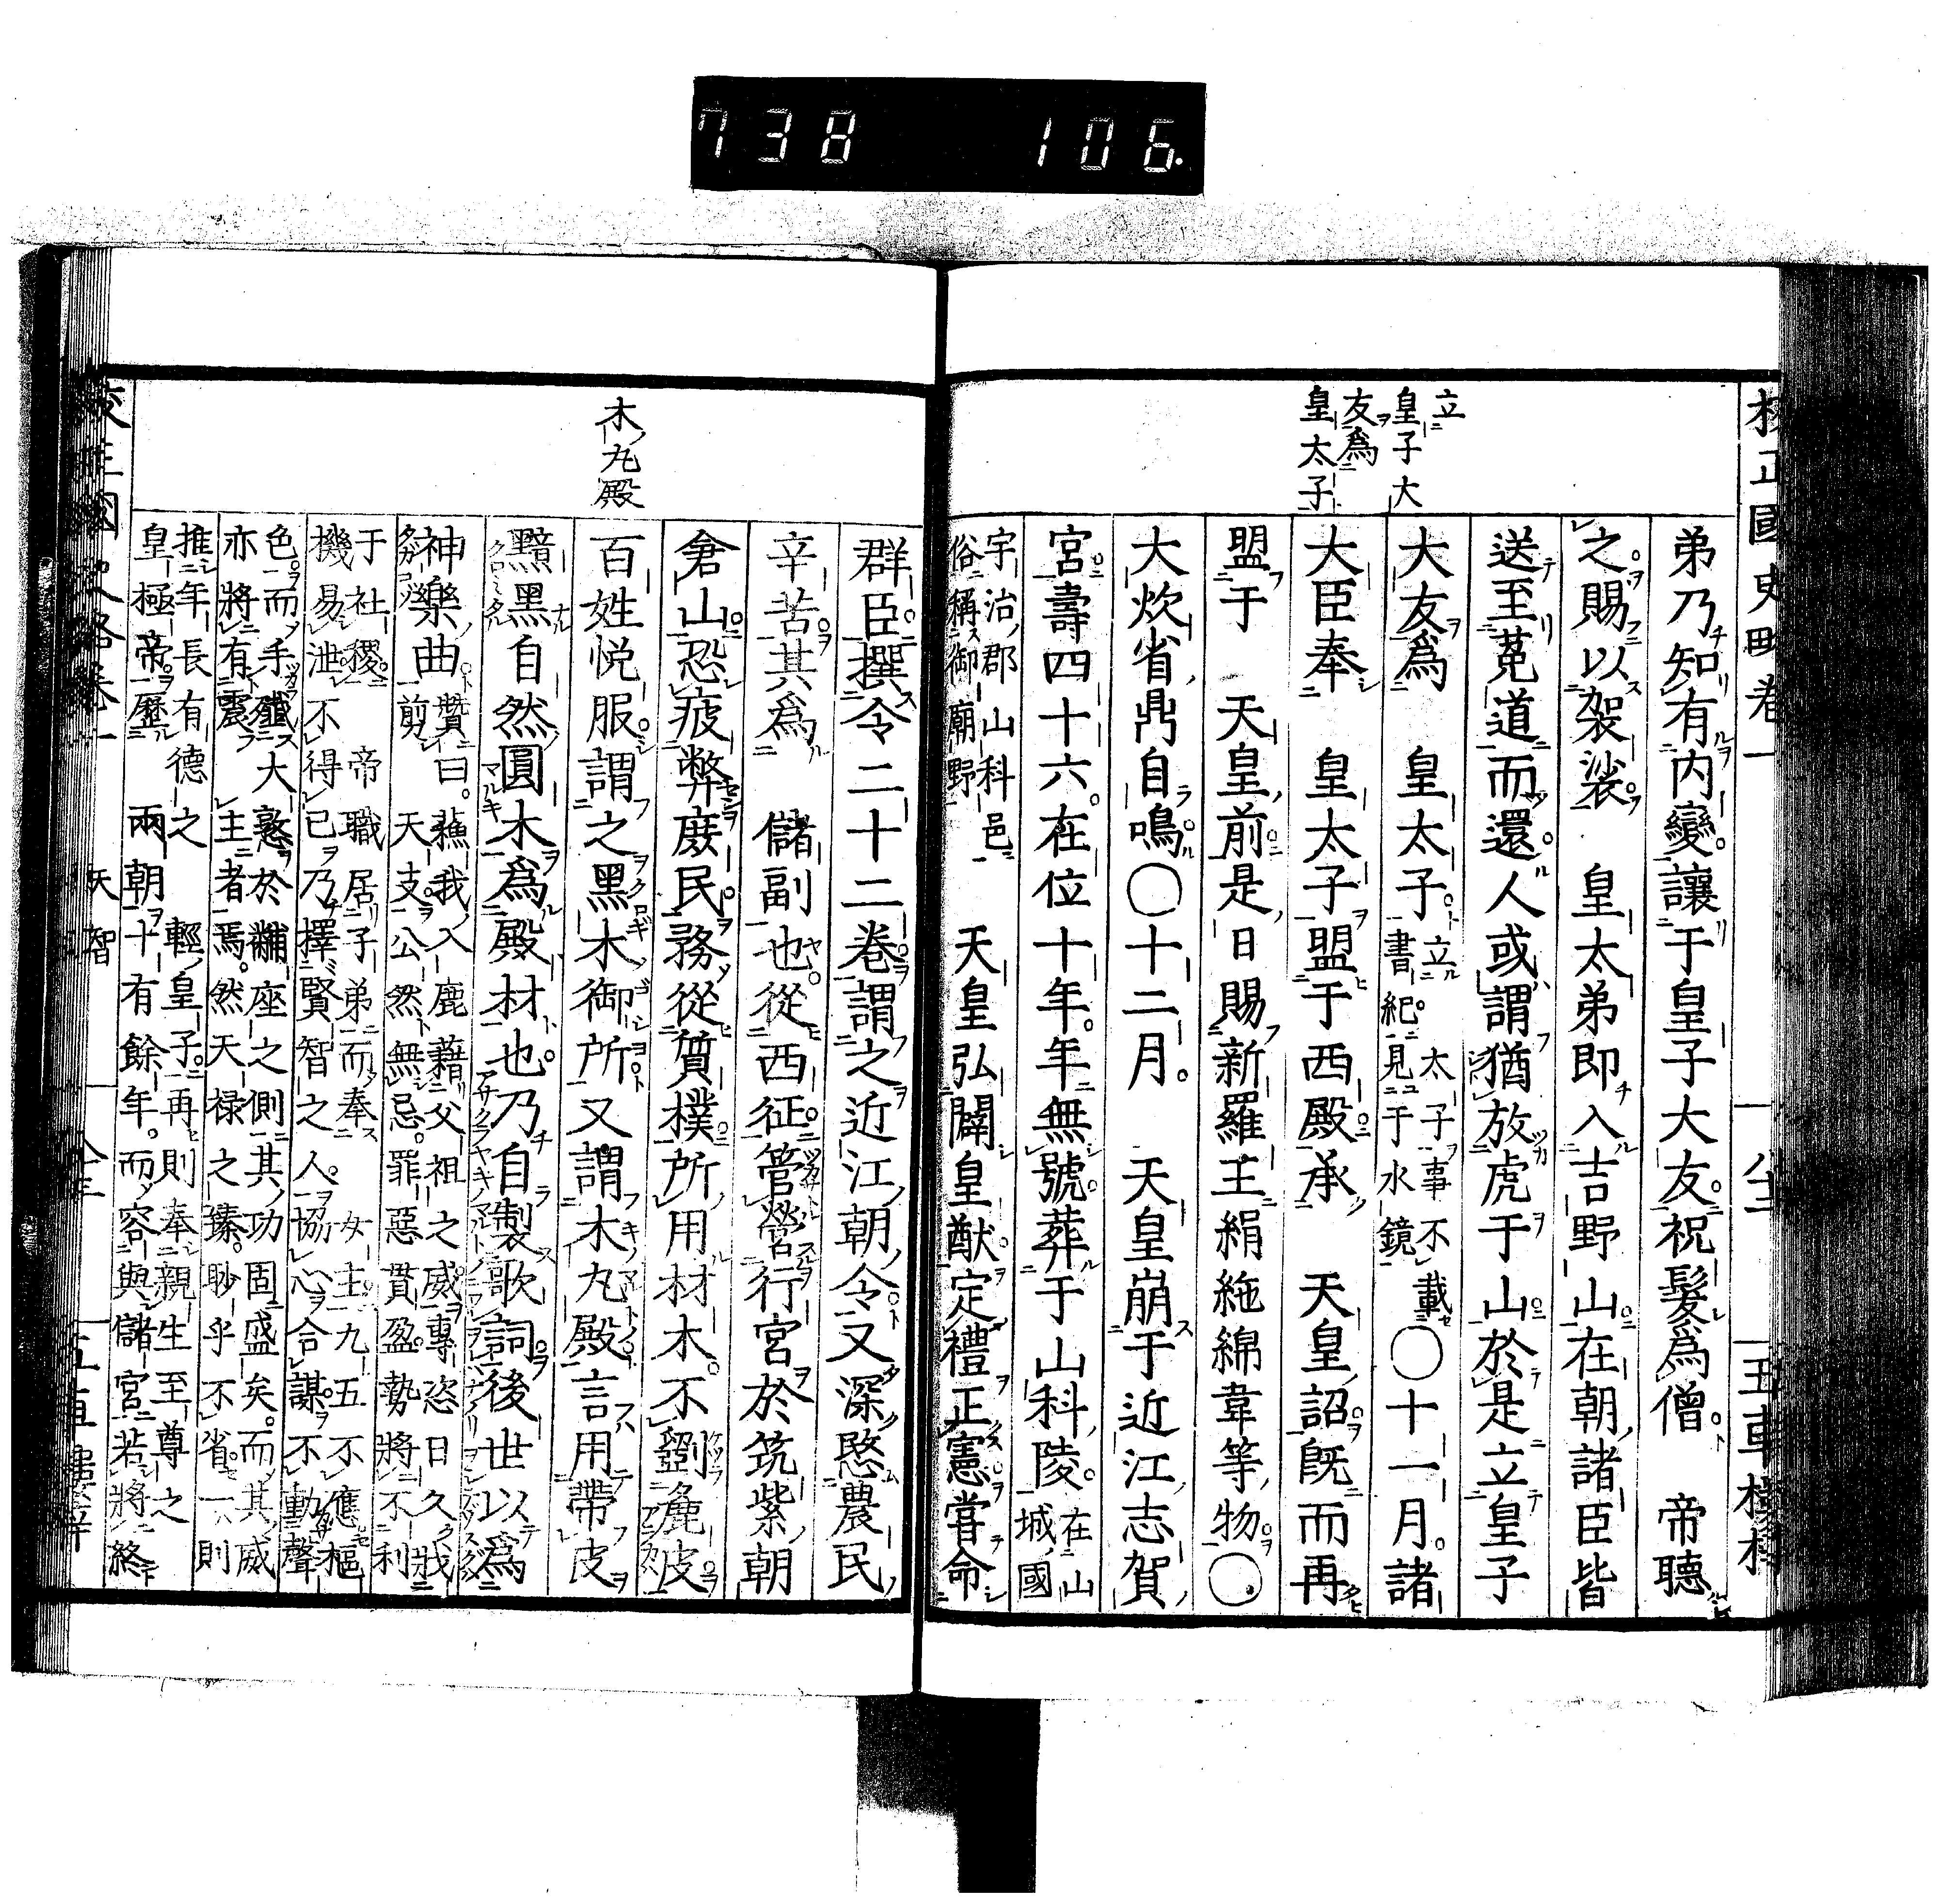 738 106
校正國史略卷一
五車樓梓
立皇子大友爲皇太子
弟乃知有内變讓于皇子大友祝髮爲僧 帝聽
之賜以袈裟 皇太弟即入吉野山在朝諸臣皆
送至菟道而還人或謂猶放虎于山於是立皇子
大友爲 皇太子立太子事不載書紀見于水鏡○十一月諸
大臣奉 皇太子盟于西殿承 天皇詔既而再
盟于 天皇前是日賜新羅王絹絁綿韋等物○
大炊省鼎自鳴○十二月 天皇崩于近江志賀
宮壽四十六在位十年年無號葬于山科陵在山城國
宇治郡山科邑俗稱御廟野 天皇弘闢皇猷定禮正憲嘗命
木丸殿
群臣撰令二十二卷謂之近江朝令又深愍農民
辛苦其爲 儲副也從西征管營行宮於筑紫朝
倉山恐疲弊庶民務從質樸所用材木不劉麁皮
百姓悦服謂之黑木御所又謂木丸殿言用帶皮
黯黑自然圓木爲殿材也乃自製歌詞後世以爲
神樂曲 贊曰蘇我入鹿藉父祖之威專恣日久戕
剪 天支公然無忌罪惡貫盈勢將不利
于社稷 帝職居子弟而奉 女主九五不應樞
機易泄不得已乃擇賢智之人協心合謀不動聲
色而手鐵大憝於黼座之側其功固盛矣而其威
亦將有震 主者焉然天禄之臻眇乎不省一則
推年長有德之 輕皇子再則奉親生至尊之
皇極帝歷 兩朝十有餘年而容與儲宮若將終
天智